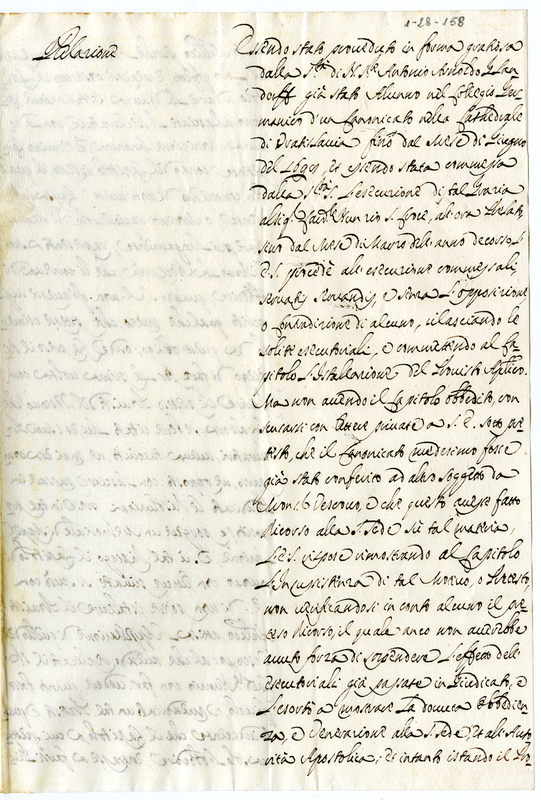 1-28-158
Relazione
Essendo stato proveduto in forma gratiosa
dalla S.tà di N. S.re Antonio Arnoldo
dorff già stato Alunno nel Collegio Ger
manico d'un Canonicato nella Cathedrale
di Vratislavia fino dal Mese di Giugno
del et essendo stata commessa
dalla S.tà S. l'esecuzione di tal Grazia
all Sig.r Card.le Nunzio S. Croce, all'ora Prelato
sino dal Mese di Marzo dell'anno decorso,
S. E. procedè all'esecuzione commessali
servatis servandis, e senza l'opposizione
o contradizione di alcuno, rilasciando le
solite esecutoriali, e commettendo al Ca
pitolo l'Istallazione del Provisto Ap.lico.
Ma non avendo il Capitolo obbedito, con
scusarsi con lettere private a S. E. sotto pre
testo, che il Canonicato medesimo fosse
già stato conferito ad altro soggetto da
Mons. Vescovo, e che questo avesse fatto
Ricorso alla S. Sede Sù tal materia,
S. E. rispose rimostrando al Capitolo
l'Insussistenza di tal Motivo, o Pretesto,
non verificandosi in conto alcuno il pre
teso Ricorso, il quale anco non averebbe
avuto forza di sospendere l'effetto dell'
Esecutoriali già passate in Giudicato, e
l'esortò a mostrare la dovuta obbedien
za, e Venerazione alla S. Sede, et all'Auto
rità Apostolica; et intanto istando il Pro